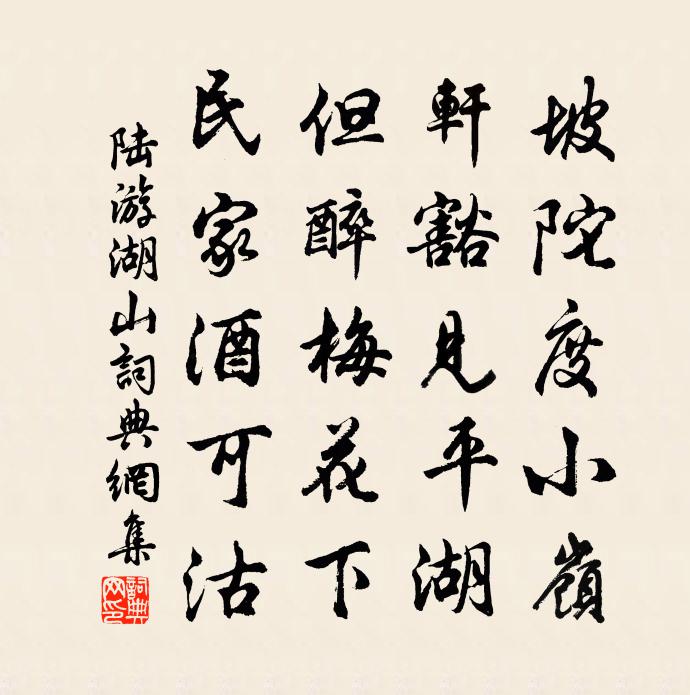 坡陀度小嶺
軒豁見平湖
但醉梅花下
民家酒可沽
陆游湖山詞典網集
詞典網印